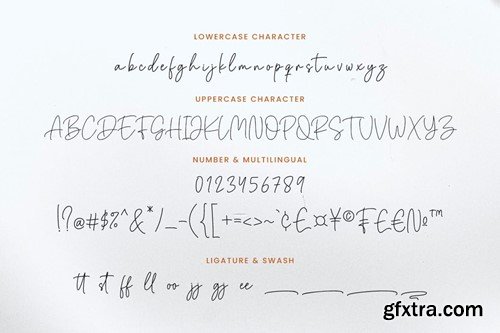 LOWERCASE CHARACTER
abcdefghijklmnopqrstuvwxyz
UPPERCASE CHARACTER
ABCDEFGHIJKLMNOPQRSTUVWXYZ
NUMBER & MULTILINGUAL
0123456789
!?@#$%^&*/_-({[+=<>~`¢£¤¥©₣₤€№™
LIGATURE & SWASH
tt st ff ll oo jj gg ee
gfxtra.com